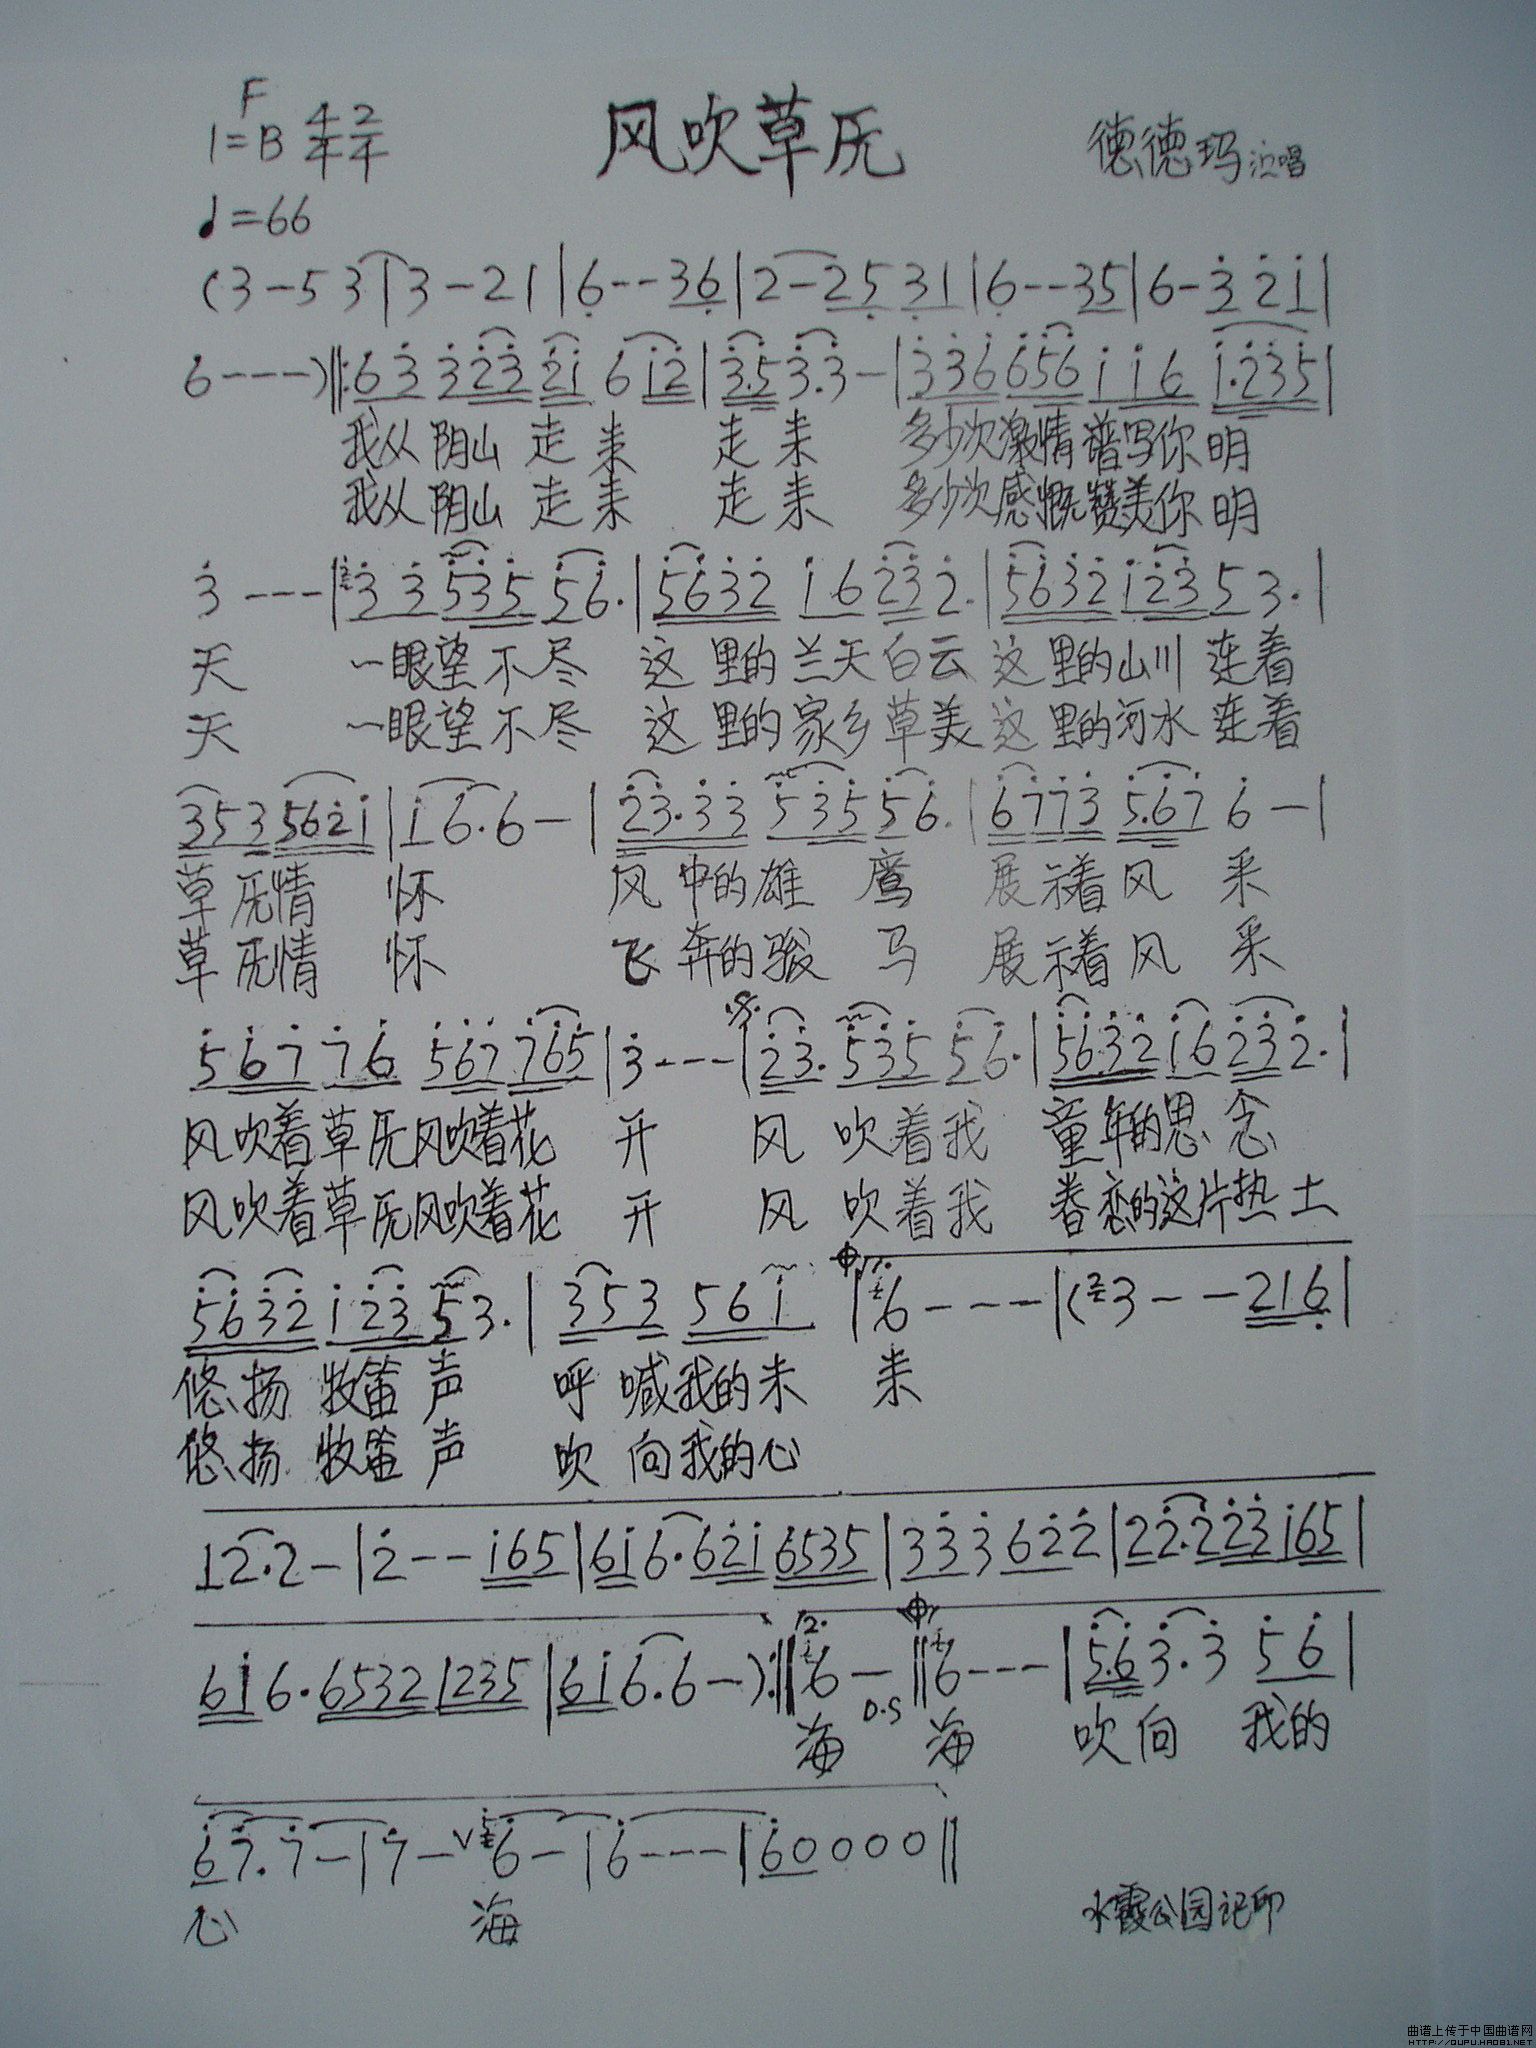 F
1=B 4/4 2/4
风吹草原
德德玛 演唱
♩=66
(3-53|3-21|6--36|2-25 31|6--35|6-3 2 1|
6---)‖:63 323 21 612|3.53.3-|336 656 116 1.235|
我从阴山走来 走来 多少次激情谱写你明
我从阴山走来 走来 多少次感慨赞美你明
3---|33 535 56.|5632 16 232.|5632 123 53.|
天 一眼望不尽 这里的兰天白云 这里的山川 连着
天 一眼望不尽 这里的家乡草美 这里的河水 连着
353 5621|16.6-|23.33 535 56.|6773 5.67 6-|
草原情 怀 风中的雄鹰 展示着风采
草原情 怀 飞奔的骏马 展示着风采
567 76 567 765|3---|23. 535 56.|5632 16 232.|
风吹着草原风吹着花 开 风 吹着我 童年的思念
风吹着草原风吹着花 开 风 吹着我 眷恋的这片热土
5632 123 53.|353 561|1. 6---|(3--216|
悠扬 牧笛声 呼喊我的未 来
悠扬 牧笛声 吹向我的心
12.2-|2--165|616.621 6535|333 622|22.223 165|
616.6532 1235|616.6-):‖2. 6-‖6---|5.63.3 56|
D.S
海 海 吹向 我的
67.7-|7-V6-|6---|60000‖
心 海
水霞公园记印
曲谱上传于中国曲谱网
HTTP://QUPU.HAO81.NET